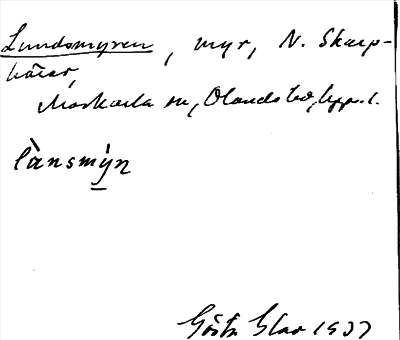 Lundsmyren, myr, N. Skarp-
kärar,
Morkarla sn, Olands hd, Uppl.
lànsmỳn
Gösta Elar 1937